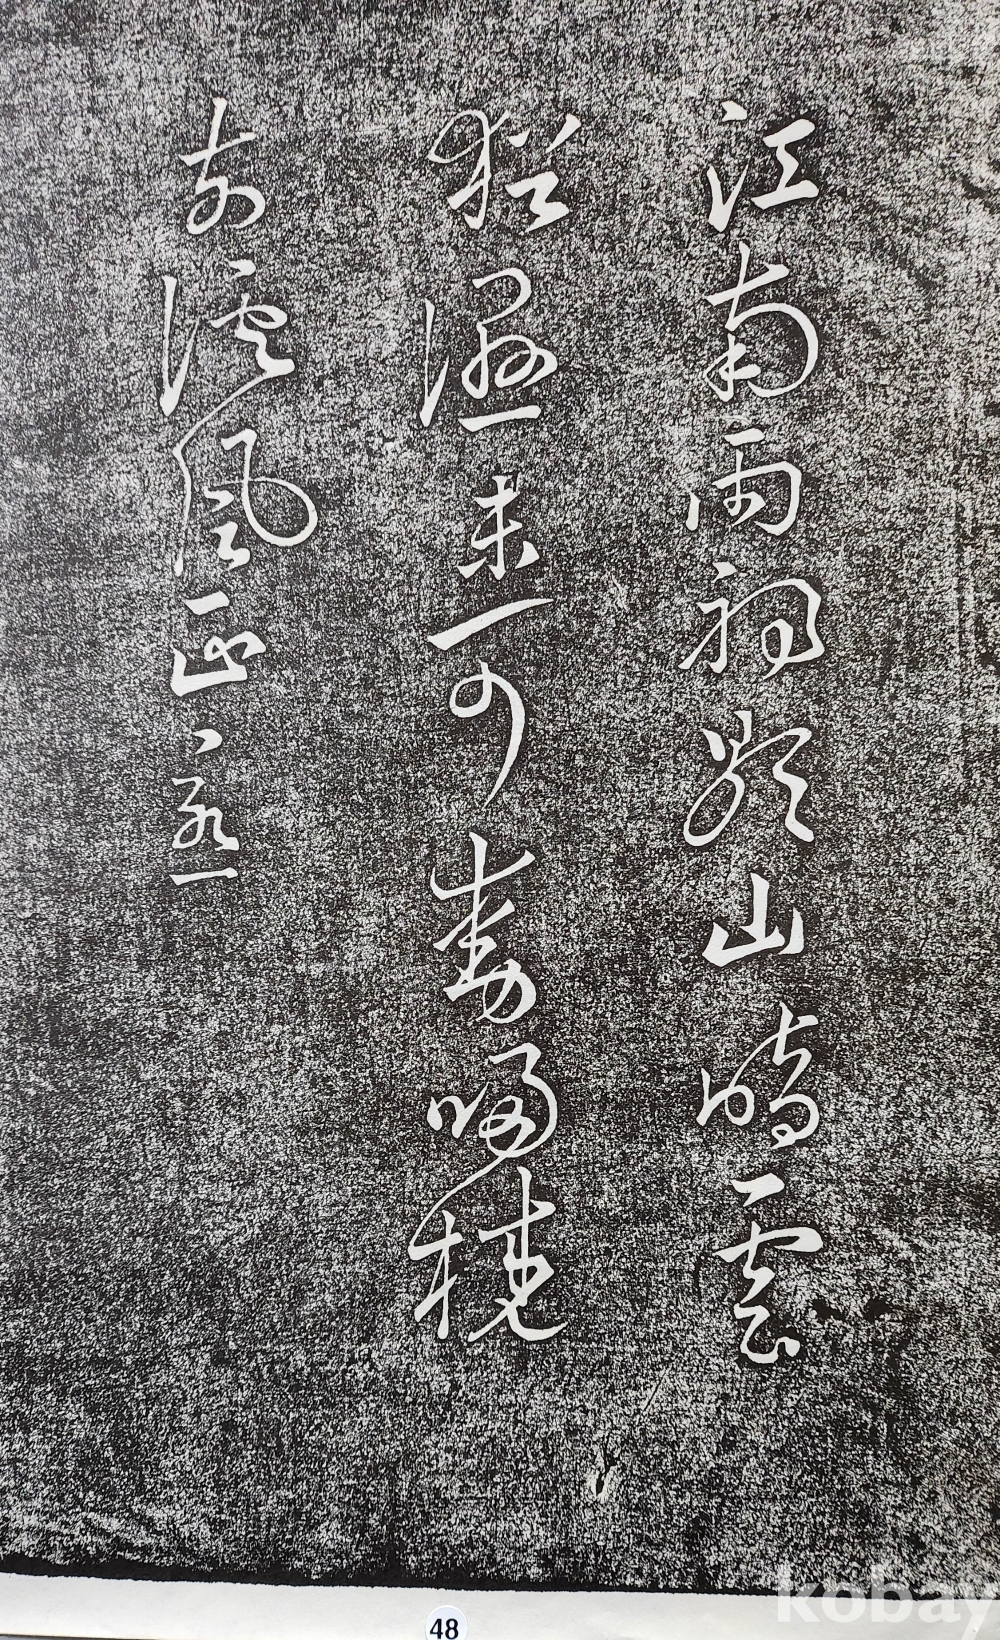 江南雨初歇山暗雲
猶濕未可動歸橈
前溪風正急
48
kobay